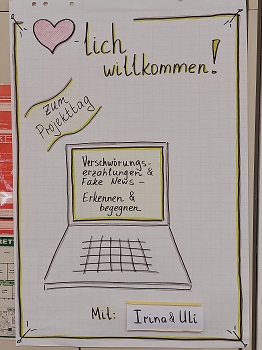 -lich
willkommen!
zum
Projekttag
Verschwörungs-
erzählungen &
Fake News -
Erkennen &
begegnen
Mit: Irina & Uli